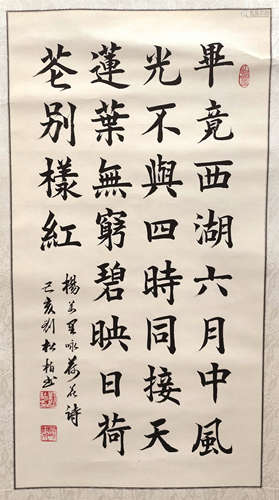 畢竟西湖六月中風
光不與四時同接天
蓮葉無窮碧映日荷
花别樣紅
楊万里咏荷花詩
己亥劉松柏书